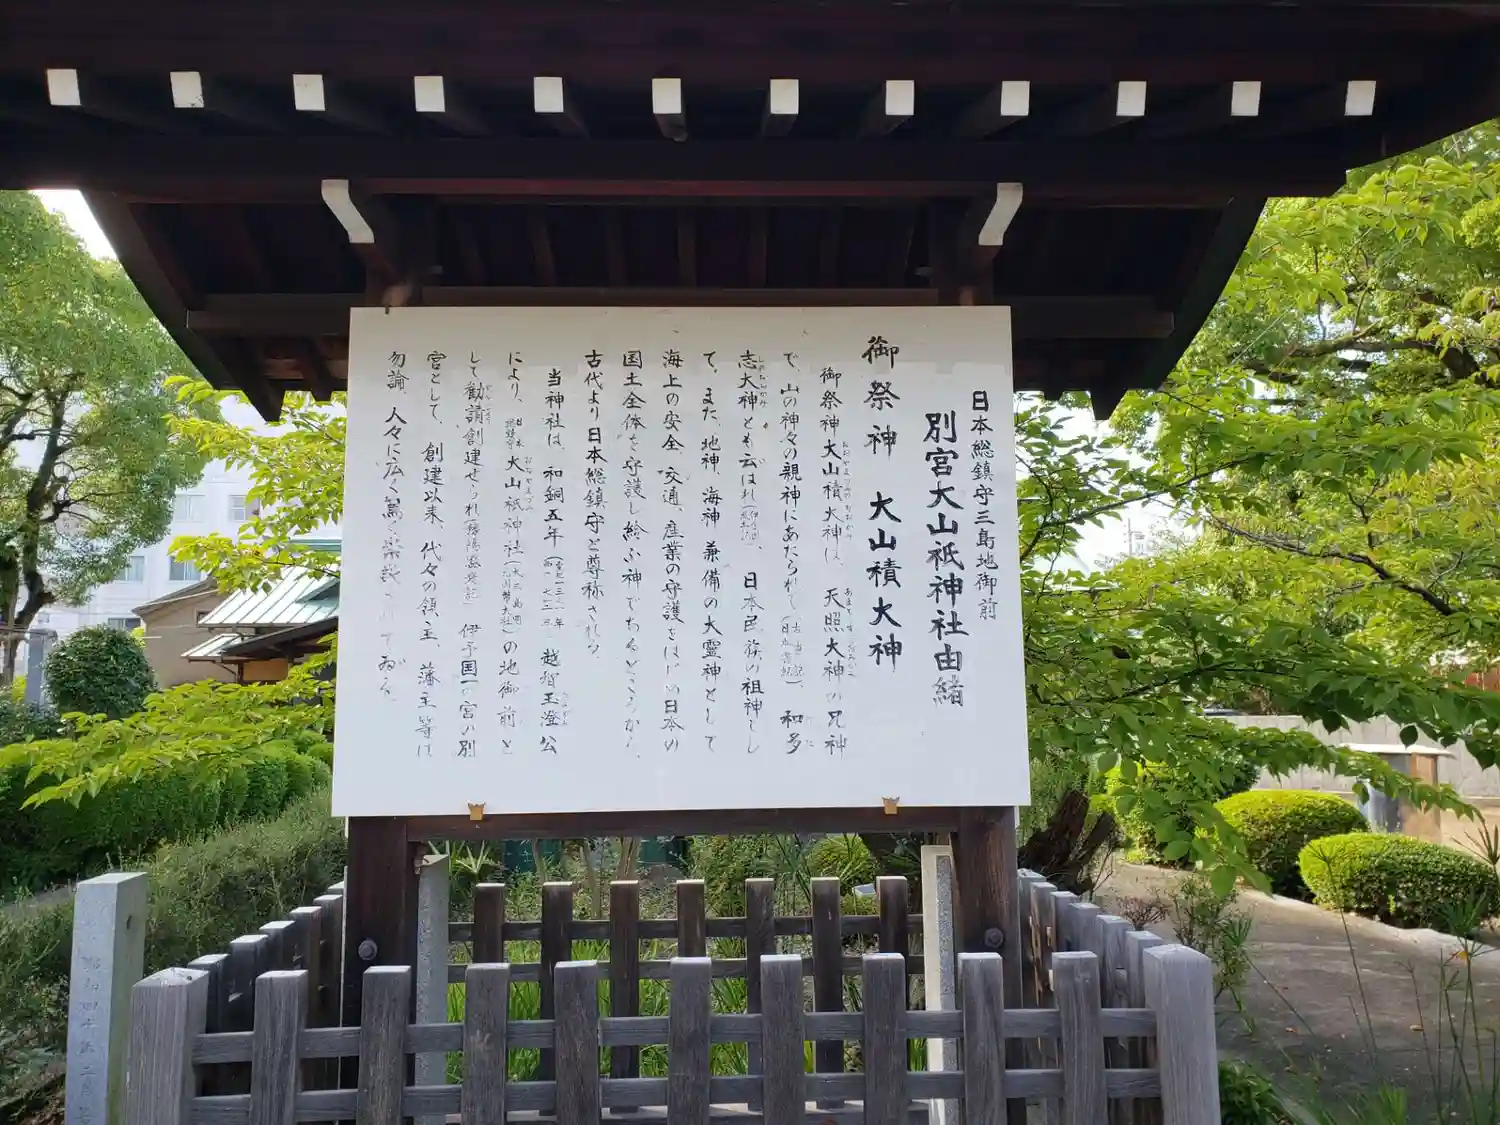 日本総鎮守三島地御前
別宮大山祇神社由緒
御祭神 大山積大神
御祭神大山積大神は、天照大神の兄神
で、山の神々の親神にあたられて(古事記 日本書紀)、和多
志大神とも云はれ(伊予国風土記)、日本民族の祖神とし
て、また、地神、海神、兼備の大霊神として
海上の安全、交通、産業の守護をはじめ日本の
国土全体を守護し給ふ神であるところから、
古代より日本総鎮守と尊称される。
当神社は、和銅五年(西一七一二年)越智玉澄公
により、日本総鎮守大山祇神社(大三島 国幣大社)の地御前と
して勧請創建せられ、伊予国一の宮の別
宮として、創建以来、代々の領主、藩主等は
勿論、人々に広く篤く崇敬されてゐる。